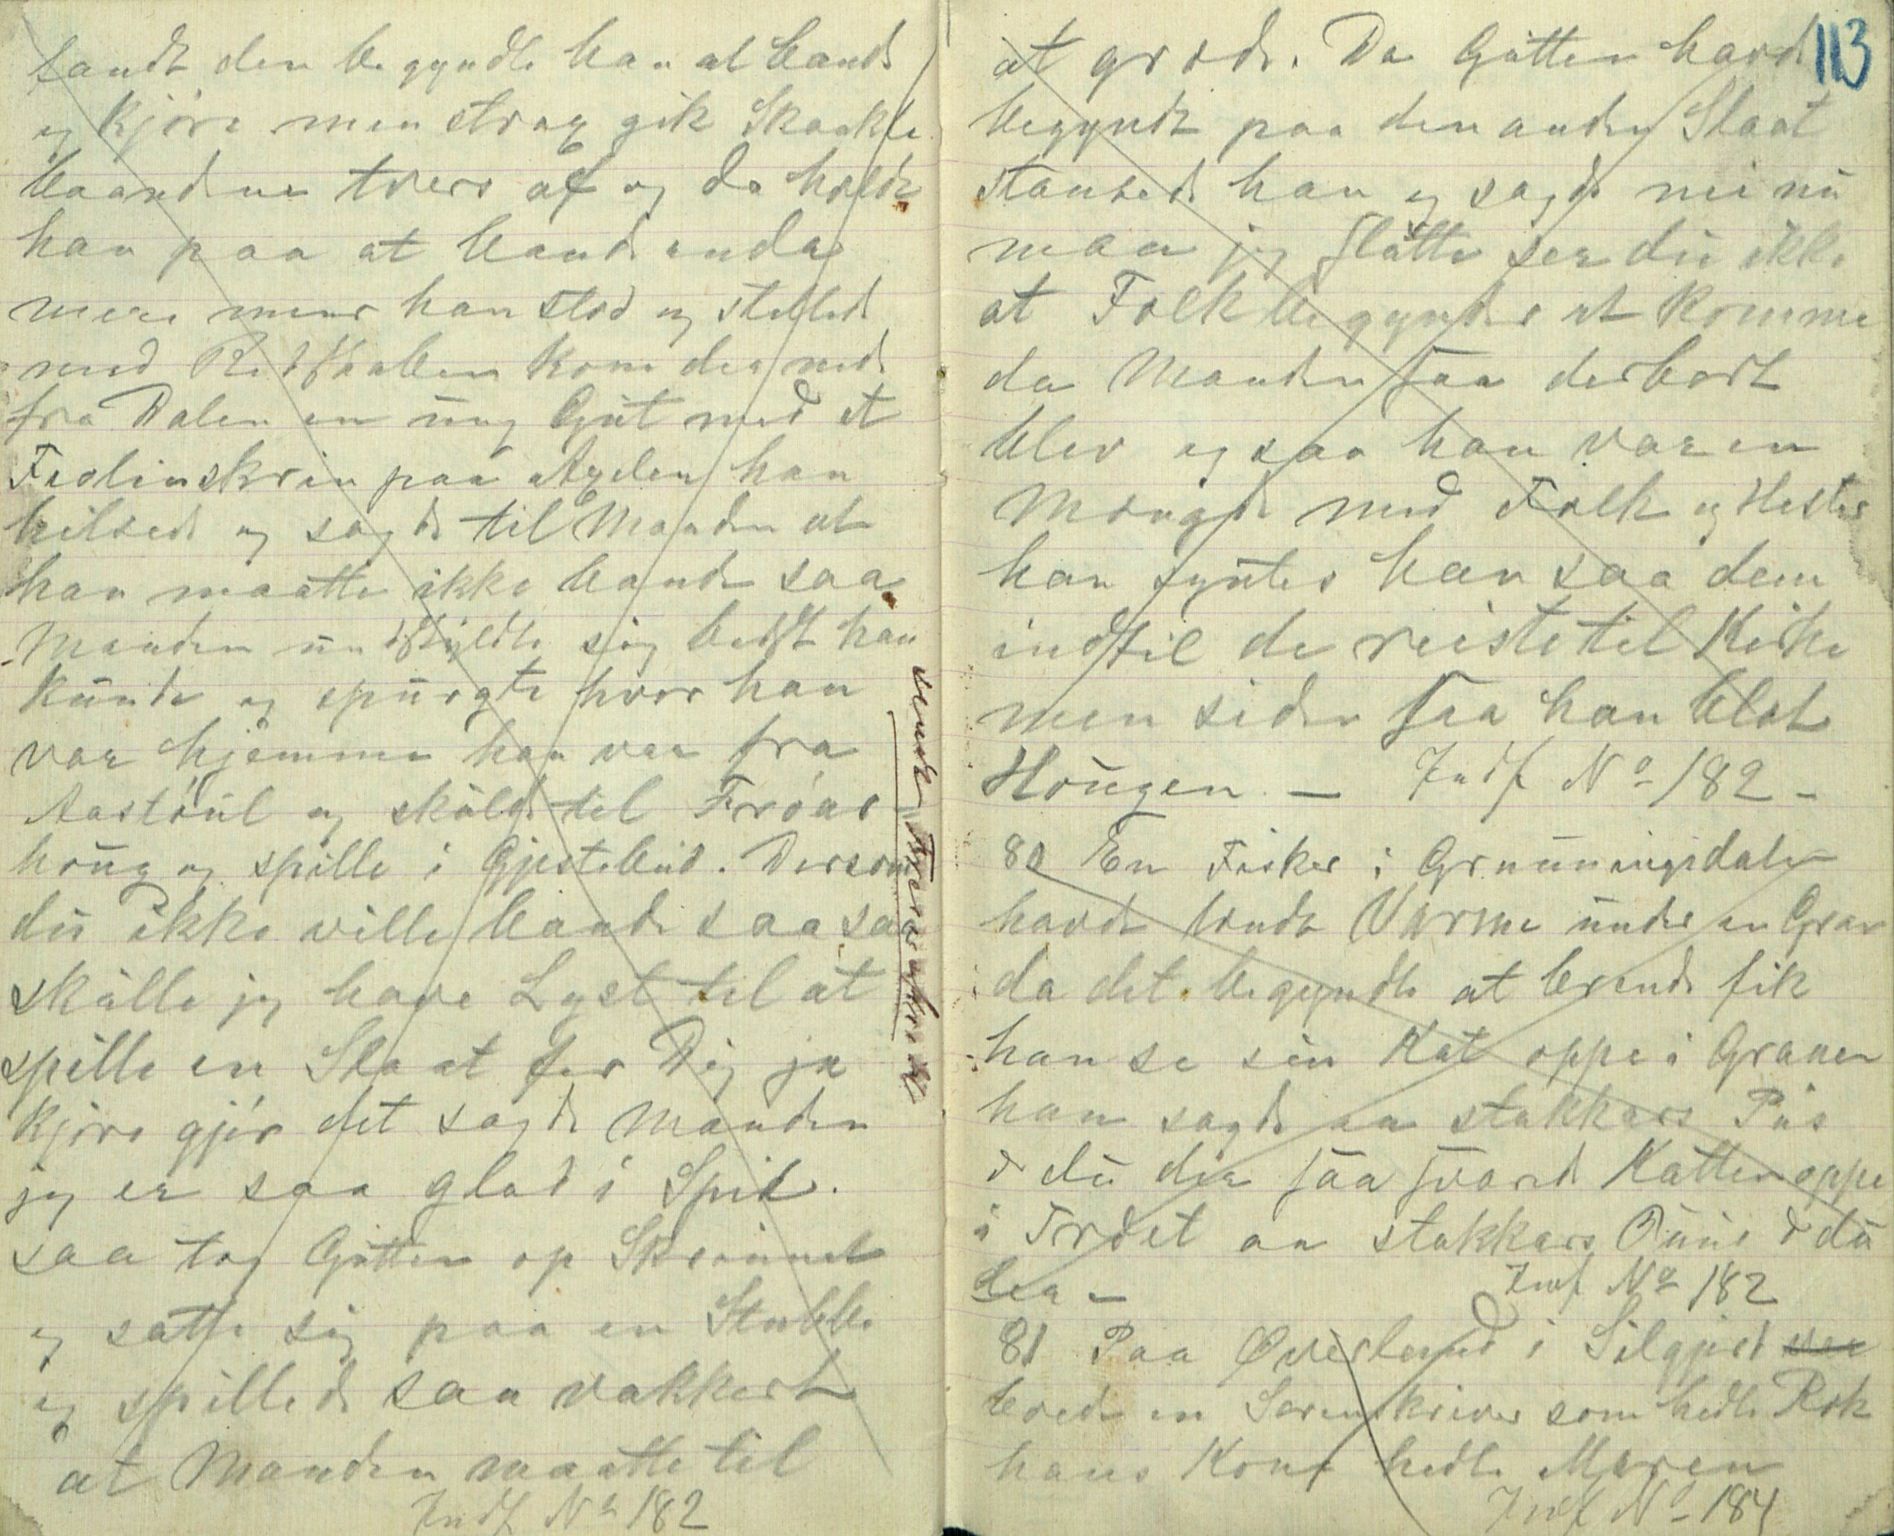 fandt den begyndte han at bande
og kjøre men strax gik Skaakle
baandene tvers af og da holdt
han paa at bande enda
mere mens han stod og stellede
med Redskaben kom der ned
fra Dalen en ung Gut med et
Fiolinskrin paa Axelen han
hilsede og sagde til Manden at
han maatte ikke bande saa
Manden undskyldte sig bedst han
kunde og spurgte hvor han
var hjemme han var fra
Aastøul og skulde til Frøas
houg og spille i Gjestebud. Dersom
du ikke ville bande saa saa
skulle jeg have Lyst til at
spille en Slaat for Dig ja
kjøre gjør det sagde Manden
jeg er saa glad i Spil.
saa tog Gutten op Skrinnet
og satte sig paa en Stubbe
og spillede saa vakkert
at Manden maatte til
Indf No 182
sendt
113
at græde. Da Gutten havde
begyndt paa den anden Slaat
stansede han og sagde nei nu
maa jeg flytte ser du ikke
at Folk begynder at komme
da Manden saa derbort
blev og saa han var en
Mængde med Folk og Hester
han syntes han saa dem
indtil de reiste til Kirke
men siden saa han blot
Hougen. — Indf No 182 -
80 En Fisker i Grunningsdalen
havde tendt Varme under en Gran
da det begyndte at brende fik
han se sin Kat oppe i Granen
han sagde aa stakkars Pus
æ du der saa svarede Katten oppe
i Træet aa stakkars Oune æ du
der —
Indf No 182
81 Paa Øvirlund i Silgjord
boede en Sorenskriver som hedte Rok
hans Kone hedte Maren
Indf No 184